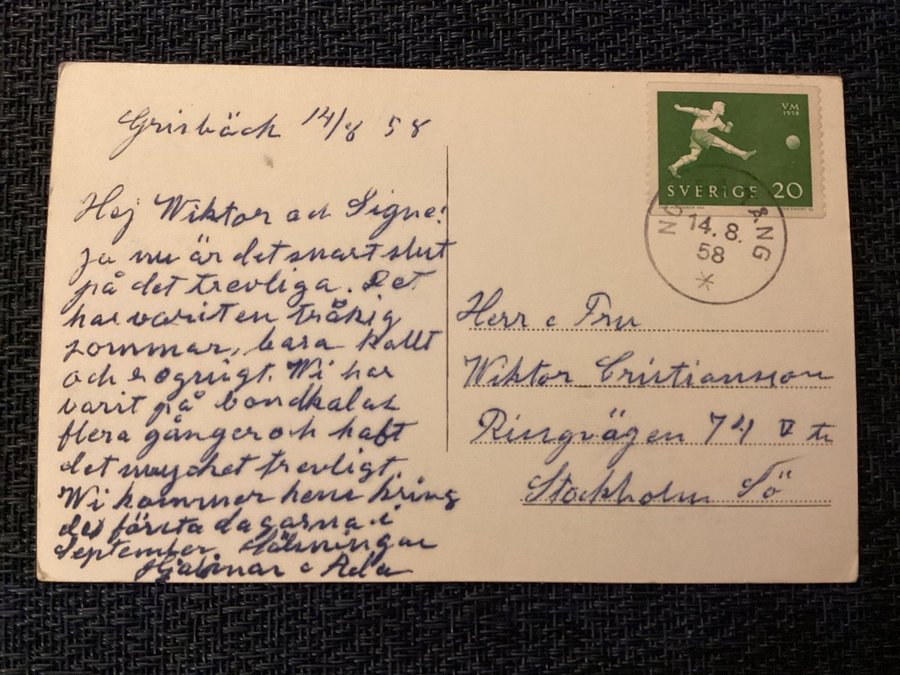 Grisbäck 14/8 58
Hej Wiktor och Signe!
Ja nu är det snart slut
på det trevliga. Det
har varit en tråkig
sommar, bara kallt
och rögnigt. Wi har
varit på bondkalas
flera gånger och haft
det mycket trevligt.
Wi kommer hem kring
de första dagarna i
September. Hälsningar
Hjalmar o Ada
VM
1958
SVERIGE 20
14. 8.
58
Herr o Fru
Wiktor Cristiansson
Ringvägen 74 V tr
Stockholm Sö